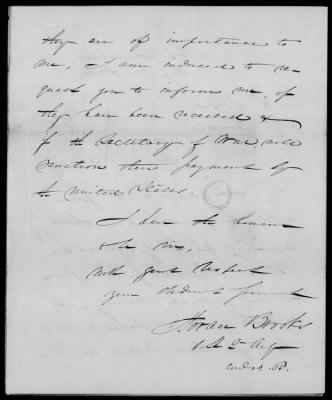 they are of importance to
me, I am induced to re-
quest you to inform me, if
they have been received &
if the Secretary of War will
sanction their payment by
the United States.
I have the honour
to be sir,
with great respect
your obedient servant
Horace Brooks
Lt 2 Arty